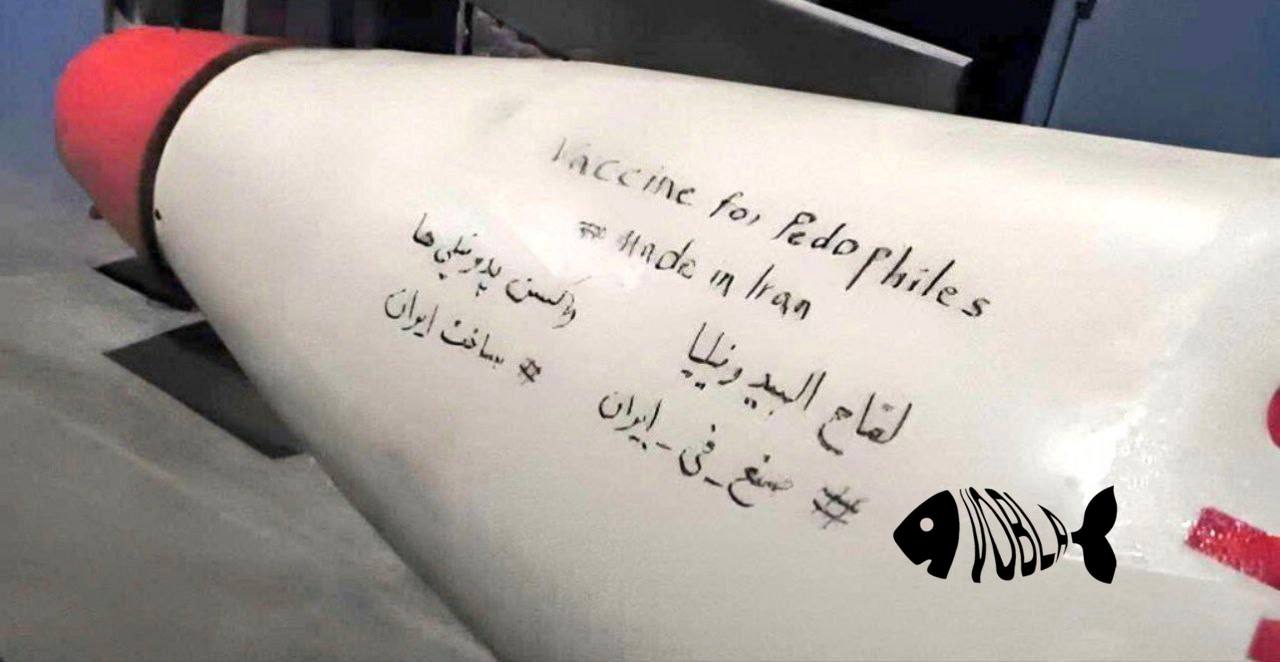 Vaccine for Pedophiles
# Made in Iran
واکسن پدوفیلی‌ها
# ساخت ایران
لقاح البيدوفيليا
# صنع_في_ايران
VOBLA